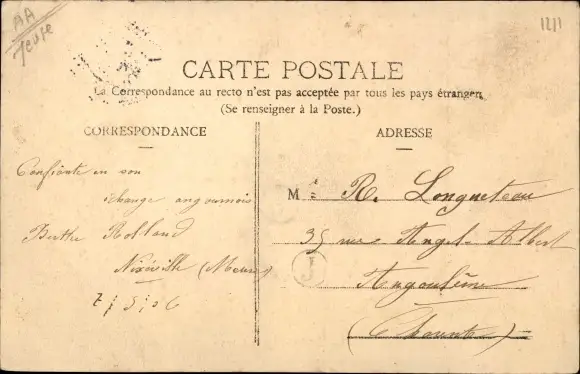 AA
1211
CARTE POSTALE
La Correspondance au recto n'est pas acceptée par tous les pays étrangers
(Se renseigner à la Poste.)
CORRESPONDANCE
Confiante en son
échange angoumois
Berthe Rolland
Nixéville (Meuse)
7/5/06
ADRESSE
M R. Longueteau
35 rue Angel-Albert
J
Angoulême
(Charente)